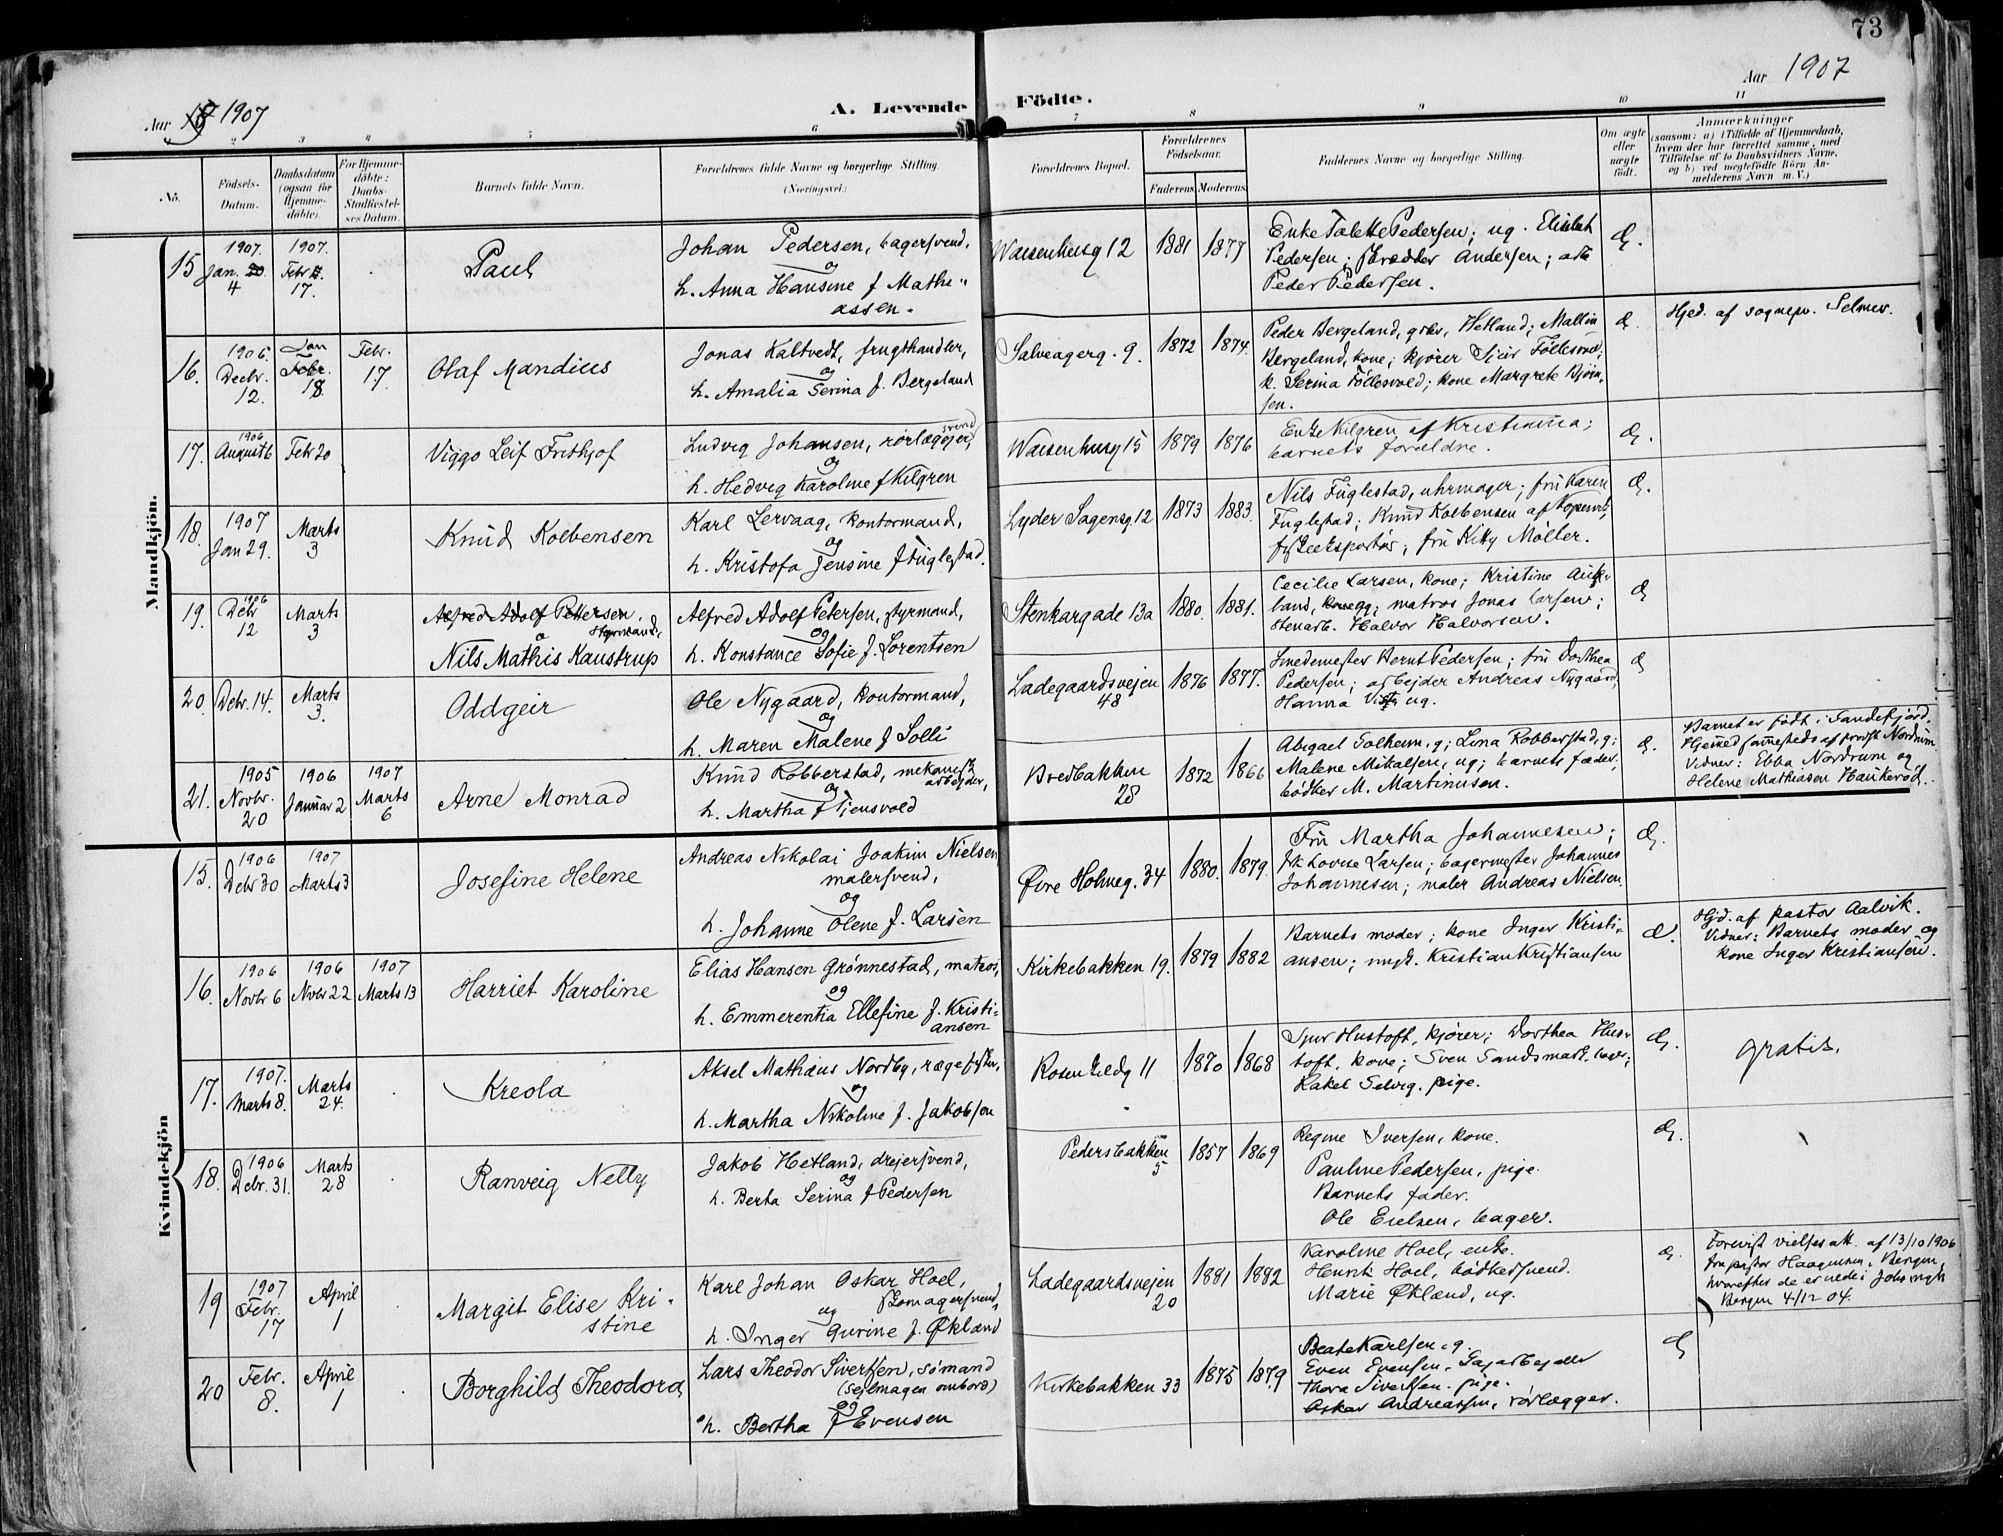 73
Aar 1907
A. Levende Födte.
Aar 1907
1 2 3 4 5 6 7 8 9 10 11
No.
Födsels-Datum.
Daabsdatum (ogsaa for Hjemmedöbte).
For Hjemmedöbte: Daabs-Stadfæstelses Datum.
Barnets fulde Navn.
Forældrenes fulde Navne og borgerlige Stilling. (Næringsvei.)
Forældrenes Bopæl.
Forældrenes Födselsaar.
Faderens. Moderens.
Faddernes Navne og borgerlige Stilling.
Om ægte eller uægte födt.
Anmærkninger
(saasom: a) i Tilfælde af Hjemmedaab,
hvem der har forrettet samme, med
Tilföielse af to Daabsvidners Navne,
og b) ved uægtefödte Börn An-
melderens Navn m. V.)
Mandkjön.
15 1907. Jan. 4 1907. Febr 17. Paul
Johan Pedersen, bagersvend,
og
h. Anna Hansine f Mathe-
assen.
Waisenhusg 12 1881 1877
Enke Talette Pedersen; ug. Elisabet
Pedersen; Andersen;
Peder Pedersen.
16. 1906. Decbr. 12. Jan 18. Febr. 17. Olaf Mandius
Jonas Kaltvedt, frugthandler,
og
h. Amalia Serina f. Bergeland
Salveagerg. 9. 1872 1874.
Peder Bergeland, gbr., Hetland; Mallin
Bergeland, kone; kjører Sjur Föllesvold;
k. Serina Föllesvold; kone Margrete Bjørn-
sen.
Hjd. af sognepr. Selmer.
17. 1906 August 6 Febr 20 Viggo Leif Frithjof
Ludvig Johansen, rørlæggersvend,
og
h. Hedvig Karoline f Kilgren
Waisenhusg 15 1879 1876
Enke Kilgren af Kristiania;
barnets forældre.
18. 1907 Jan 29. Marts 3 Knud Kolbensen
Karl Lervaag, kontormand,
og
h. Kristofa Jensine f Fuglestad.
Lyder Sagensg. 12 1873 1883.
Nils Fuglestad, uhrmager; fru Karen
Fuglestad; Knud Kolbensen af Kopervik,
fru Kitty Möller.
19. 1906 Debr 12 Marts 3 Alfred Adolf Petersen. Styrmand,
Nils Mathis Kaustrup
Alfred Adolf Petersen, styrmand,
og
h. Konstance Sofie f. Lorentsen
Stenkargade 13a 1880. 1881.
Cecilie Larsen, kone; Kristine Auk-
land, matros Jonas Larsen;
stenarb. Halvor Halvorsen.
20. Debr. 14. Marts 3. Oddgeir
Ole Nygaard, kontormand,
og
h. Maren Malene f Solli
Ladegaardsvejen 48 1876 1877.
Smedemester Bernt Pedersen; fru Dorthea
Pedersen; arbejder Andreas Nygaard,
Hanna ug.
21. 1905 Novbr. 20 1906 Januar 2 1907 Marts 6 Arne Monrad
Knud Robberstad, mekanisk arbejder,
og
h. Martha f Tjensvold
Bredbakken 28 1872 1866
Abigael Solheim, g; Lina Robberstad, g;
Malene Mikalsen, ug; barnets fader;
bødker M. Martinusen.
Barnet er født i Sandefjord.
Hjemmed sammesteds af provst Nordrum
Vidner: Ebba Nordrum og
Helene Mathiasen Haukerød.
Kvindekjön
15. 1906 Debr 30 1907 Marts 3 Josefine Helene
Andreas Nikolai Joakim Nielsen
malersvend,
og
h. Johanne Olene f. Larsen
Øvre Holmeg. 34 1880. 1879.
Fru Martha Johannesen;
Lovise Larsen; bagermester Johannes
Johannesen; maler Andreas Nielsen.
16. 1906 Novbr 6 1906 Novbr 22 1907 Marts 13 Harriet Karoline
Elias Hansen Grønnestad, matros,
og
h. Emmerentia Ellefine f. Kristi-
ansen
Kirkebakken 19. 1879 1882
Barnets moder; kone Inger Kristi-
ansen; ungk. Kristian Kristiansen
Hjd. af pastor Aalvik.
Vidner: Barnets moder og
kone Inger Kristiansen.
17. 1907. Marts 8. Marts 24. Kreola
Aksel Mathæus Nordby,
og
h. Martha Nikoline f. Jakobsen
Rosenkildeg 11 1870 1868
Sjur Hustoft, kjører; Dorthea Hus-
toft, kone; Sven Sandsmark, bager;
Rakel Selvig. pige.
gratis.
18. 1906 Debr. 31. Marts 28 Ranveig Nelly
Jakob Hetland, drejersvend,
og
h. Berta Serina f Pedersen
Pedersbakken 5 1857 1869
Regine Iversen, kone.
Pauline Pedersen, pige.
Barnets fader.
Ole Eielsen, bager.
19 1907 Febr. 17 April 1 Margit Elise Kri-
stine
Karl Johan Oskar Hoel,
skomagersvend,
og
h. Inger Gurine f. Økland
Ladegaardsvejen 20 1881 1882
Karoline Hoel, enke.
Henrik Hoel, bødkersvend.
Marie Økland, ug.
Forevist vielsesatt. af 13/10 1906
fra pastor Haagensen, Bergen,
hvorefter de er viede i
Bergen 4/12 04.
20 Febr. 8. April 1 Borghild Theodora
Lars Theodor Sivertsen, sømand
(Sejlmager ombord)
og
h. Bertha f Evensen
Kirkebakken 33 1875 1879
Beate Karlsen, g.
Even Evensen, Gasarbejder
Thora Sivertsen. pige.
Oskar Andreassen, rørlægger.